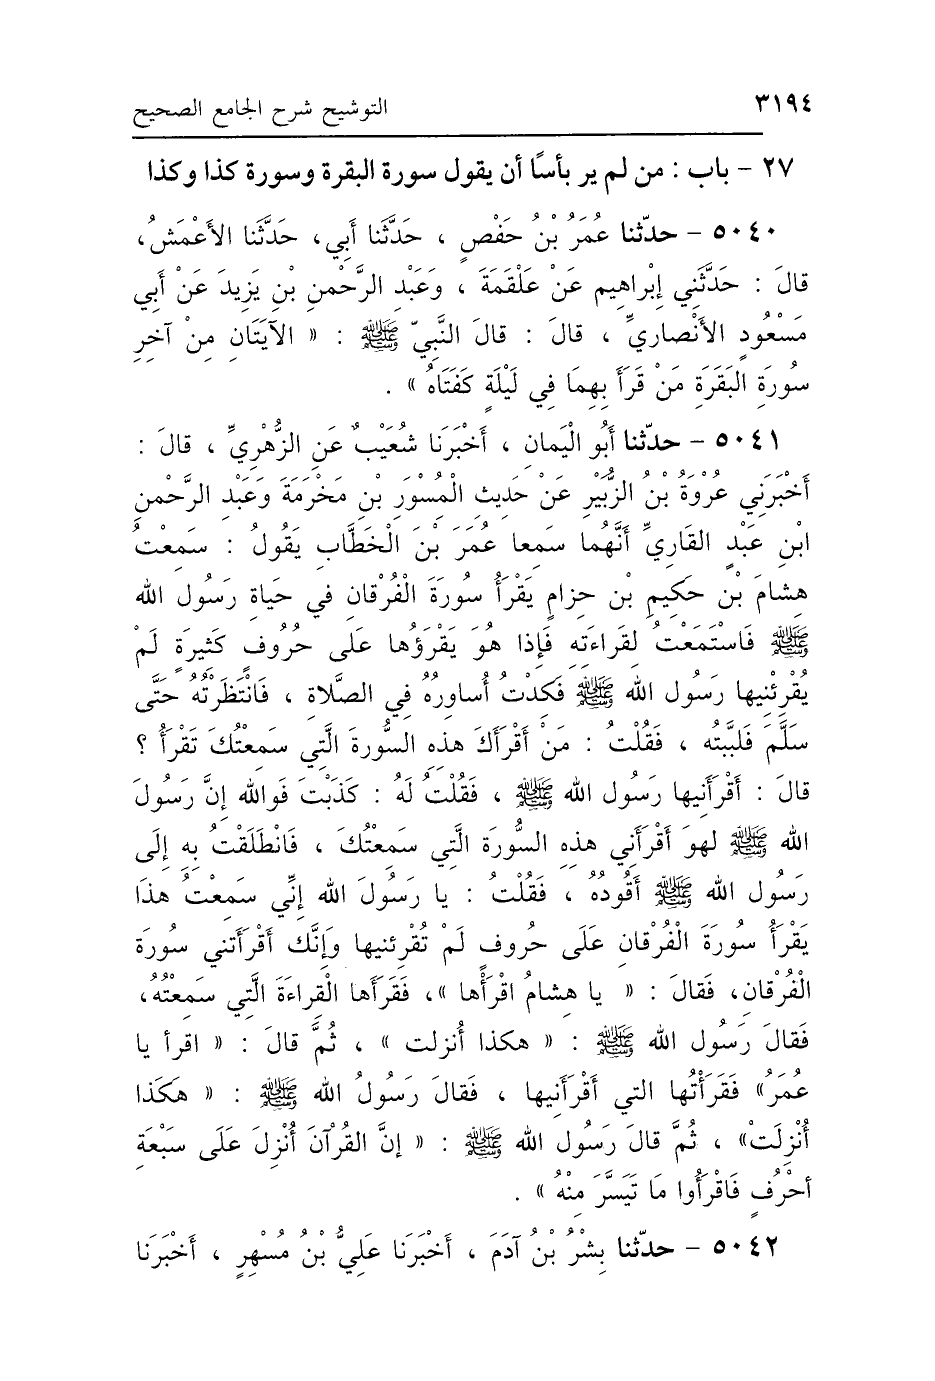 ٣١٩٤ التوشيح شرح الجامع الصحيح
٢٧ - باب : من لم ير بأسًا أن يقول سورة البقرة وسورة كذا وكذا
٥٠٤٠ - حدّثنا عُمَرُ بْنُ حَفْصٍ ، حَدَّثَنَا أَبي، حَدَّثَنَا الأَعْمَشُ،
قالَ : حَدَّثَنِي إِبْراهِيم عَنْ عَلْقَمَةَ ، وَعَبْدِ الرَّحْمنِ بْنِ يَزِيدَ عَنْ أَبي
مَسْعُودٍ الأَنْصارِيِّ ، قالَ : قالَ النَّبيّ ﷺ : « الآيَتَانِ مِنْ آخِرِ
سُورَةِ البَقَرَةِ مَنْ قَرَأَ بِهِمَا فِي لَيْلَةٍ كَفَتَاهُ » .
٥٠٤١ - حدّثنا أَبُو الْيَمان ، أَخْبَرَنَا شُعَيْبٌ عَنِ الزُّهْرِيِّ ، قالَ :
أَخْبَرَنِي عُرْوَةُ بْنُ الزُّبَيْرِ عَنْ حَدِيثِ الْمُسْوَرِ بْنِ مَخْرَمَةَ وَعَبْدِ الرَّحْمنِ
ابْنِ عَبْدٍ القَارِيِّ أَنَّهُما سَمِعا عُمَرَ بْنَ الْخَطَّابِ يَقُولُ : سَمِعْتُ
هِشامَ بْنَ حَكِيمِ بْنِ حِزامٍ يَقْرَأُ سُورَةَ الْفُرْقانِ في حَياةِ رَسُولِ الله
ﷺ فَاسْتَمَعْتُ لِقِراءَتِهِ فَإِذا هُوَ يَقْرَؤُها عَلى حُرُوفٍ كَثِيرَةٍ لَمْ
يُقْرِئْنِيها رَسُول الله ﷺ فَكِدْتُ أُساوِرُهُ فِي الصَّلاةِ ، فَانْتَظَرْتُهُ حَتَّى
سَلَّمَ فَلَبَّبْتُه ، فَقُلْتُ : مَنْ أَقْرَأَكَ هذِهِ السُّورةَ الَّتِي سَمِعْتُكَ تَقْرَأُ ؟
قالَ : أَقْرَأَنِيها رَسُول الله ﷺ ، فَقُلْتُ لَهُ : كَذَبْتَ فَوالله إِنَّ رَسُولَ
الله ﷺ لهوَ أَقْرَأَنِي هذِهِ السُّورَة الَّتِي سَمِعْتُكَ ، فَانْطَلَقْتُ بِهِ إِلَى
رَسُول الله ﷺ أَقُودُهُ ، فَقُلْتُ : يا رَسُولَ الله إِنِّي سَمِعْتُ هذَا
يَقْرَأُ سُورَةَ الْفُرْقانِ عَلَى حُرُوفٍ لَمْ تُقْرِئنِيها وَإِنَّك أَقْرَأتَني سُورَة
الْفُرْقانِ، فَقالَ : « يا هشامُ اقْرَأْها »، فَقَرَأَها الْقِراءَةَ الَّتي سَمِعْتُهُ،
فَقالَ رَسُول الله ﷺ : « هكذا أُنزلت » ، ثُمَّ قالَ : « اقرأ يا
عُمَرُ» فَقَرَأْتُها التي أَقْرَأَنِيها ، فَقالَ رَسُولُ الله ﷺ : « هكَذا
أُنْزِلَتْ» ، ثُمَّ قالَ رَسُول الله ﷺ : « إِنَّ القُرْآنَ أُنْزِلَ عَلَى سَبْعَةِ
أَحْرُفٍ فَاقْرَأُوا مَا تَيَسَّرَ مِنْهُ » .
٥٠٤٢ - حدّثنا بِشْرُ بْنُ آدَمَ ، أَخْبَرَنَا عَلِيُّ بْنُ مُسْهِرٍ ، أَخْبَرَنا